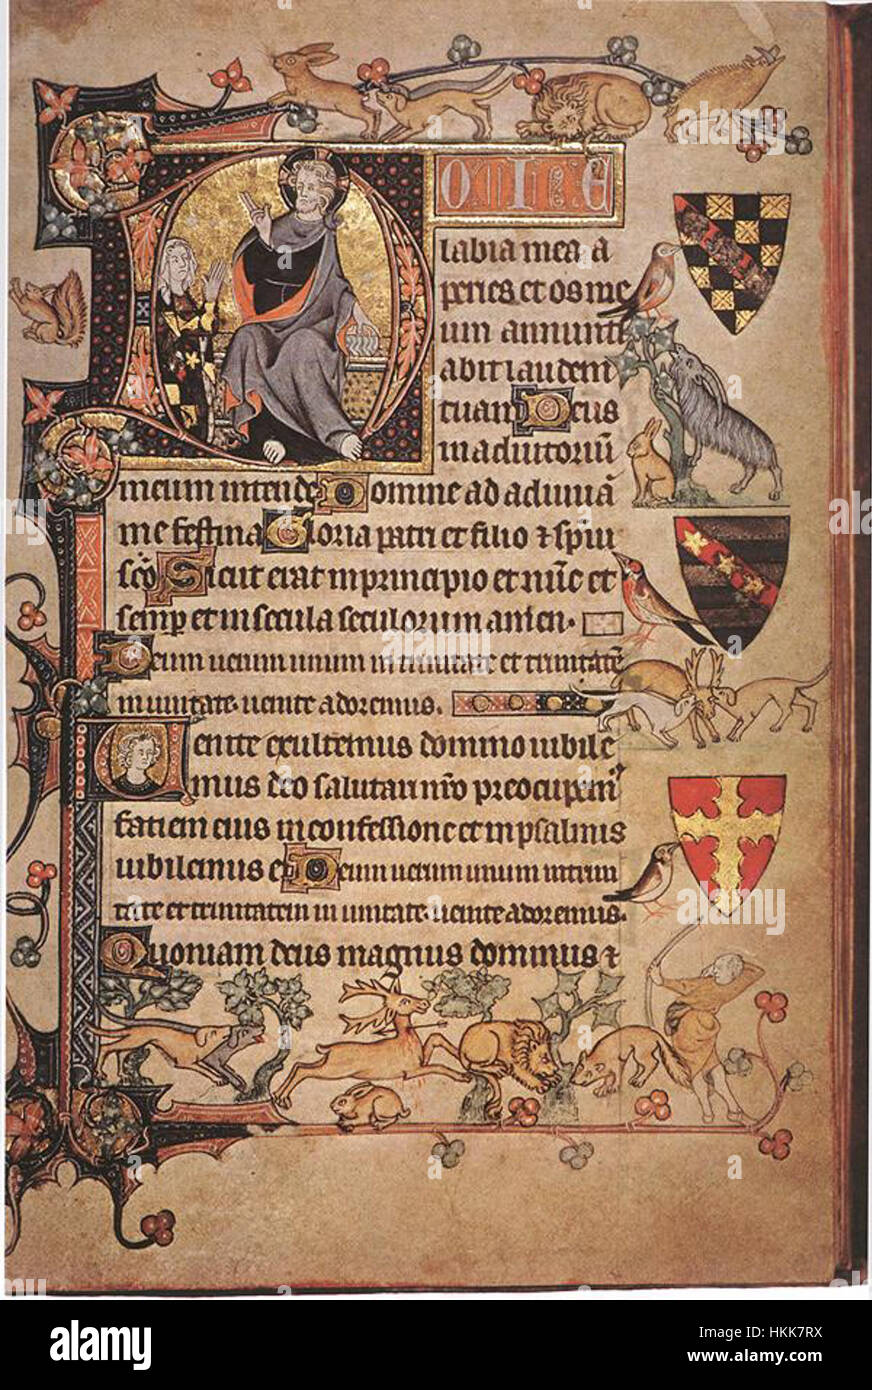 DOMINE
labia mea a
peries et os me
um annunti
abit laudem
tuam Deus
in adiutoriū
meum intende Domine ad adiuuā
me festina Gloria patri et filio ⁊ spiri
scō Sicut erat in principio et nūc et
semp et in secula seculorum amen.
Deum uerum unum in trinitate et trinitatē
in unitate. uenite adoremus.
Uenite exultemus domino iubile
mus deo salutari nr̄o preocupem9
faciem eius in confessione et in psalmis
iubilemus ei Deum uerum unum in trini
tate et trinitatem in unitate. uenite adoremus.
Quoniam deus magnus dominus ⁊
alamy stock photo
HKK7RX
www.alamy.com